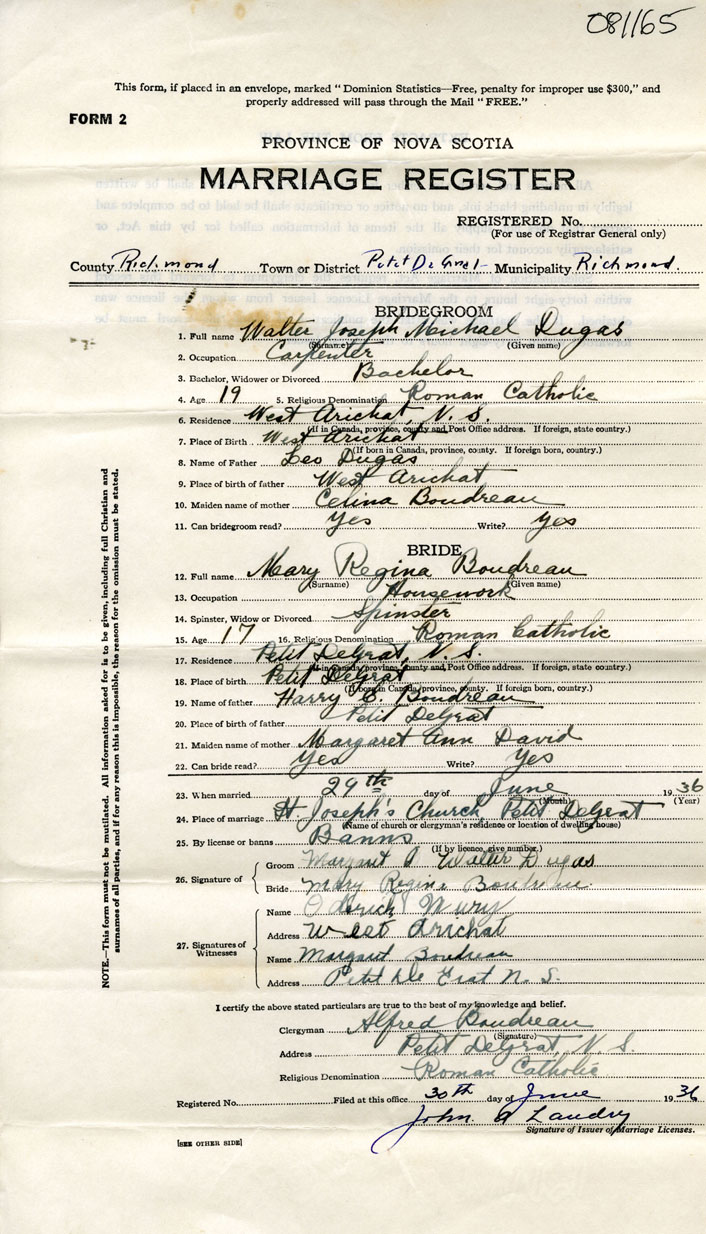 081165
This form, if placed in an envelope, marked "Dominion Statistics—Free, penalty for improper use $300," and
properly addressed will pass through the Mail "FREE."
FORM 2
PROVINCE OF NOVA SCOTIA
MARRIAGE REGISTER
REGISTERED No.
(For use of Registrar General only)
County Richmond Town or District Petit De Grat Municipality Richmond.
BRIDEGROOM
1. Full name Walter Joseph Michael Dugas
(Surname) (Given name)
2. Occupation Carpenter
3. Bachelor, Widower or Divorced Bachelor
4. Age 19 5. Religious Denomination Roman Catholic
6. Residence West Arichat, N. S.
(If in Canada, province, county and Post Office address. If foreign, state country.)
7. Place of Birth West Arichat
(If born in Canada, province, county. If foreign born, country.)
8. Name of Father Leo Dugas
9. Place of birth of father West Arichat
10. Maiden name of mother Celina Boudreau
11. Can bridegroom read? Yes Write? Yes
BRIDE
12. Full name Mary Regina Boudreau
(Surname) (Given name)
13. Occupation Housework
14. Spinster, Widow or Divorced Spinster
15. Age 17 16. Religious Denomination Roman Catholic
17. Residence Petit DeGrat, N. S.
(If in Canada, province, county and Post Office address. If foreign, state country.)
18. Place of birth Petit DeGrat
(If born in Canada, province, county. If foreign born, country.)
19. Name of father Harry C. Boudreau
20. Place of birth of father Petit DeGrat
21. Maiden name of mother Margaret Ann David
22. Can bride read? Yes Write? Yes
23. When married 29th day of June 1936
(Month) (Year)
24. Place of marriage St. Joseph's Church, Petit DeGrat
(Name of church or clergyman's residence or location of dwelling house)
25. By license or banns Banns
(If by licence, give number.)
26. Signature of
Groom Walter Dugas
Bride Mary Regina Boudreau
27. Signatures of Witnesses
Name
Address West Arichat
Name Margaret Boudreau
Address Petit De Grat N. S.
I certify the above stated particulars are true to the best of my knowledge and belief.
Clergyman Alfred Boudreau
(Signature)
Address Petit DeGrat, N. S.
Religious Denomination Roman Catholic
Registered No. Filed at this office 30th day of June 1936
John A Landry
Signature of Issuer of Marriage Licenses.
[SEE OTHER SIDE]
NOTE.—This form must not be mutilated. All information asked for is to be given, including full Christian and
surnames of all parties, and if for any reason this is impossible, the reason for the omission must be stated.